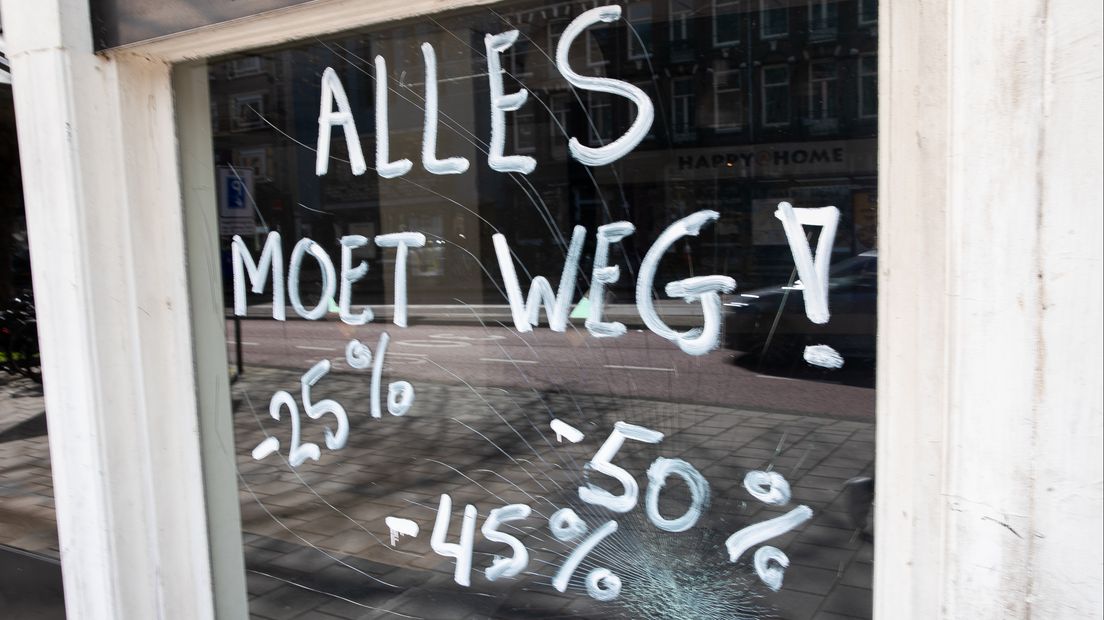 ALLES
HAPPY@HOME
MOET WEG!
-25%
-50%
-45%